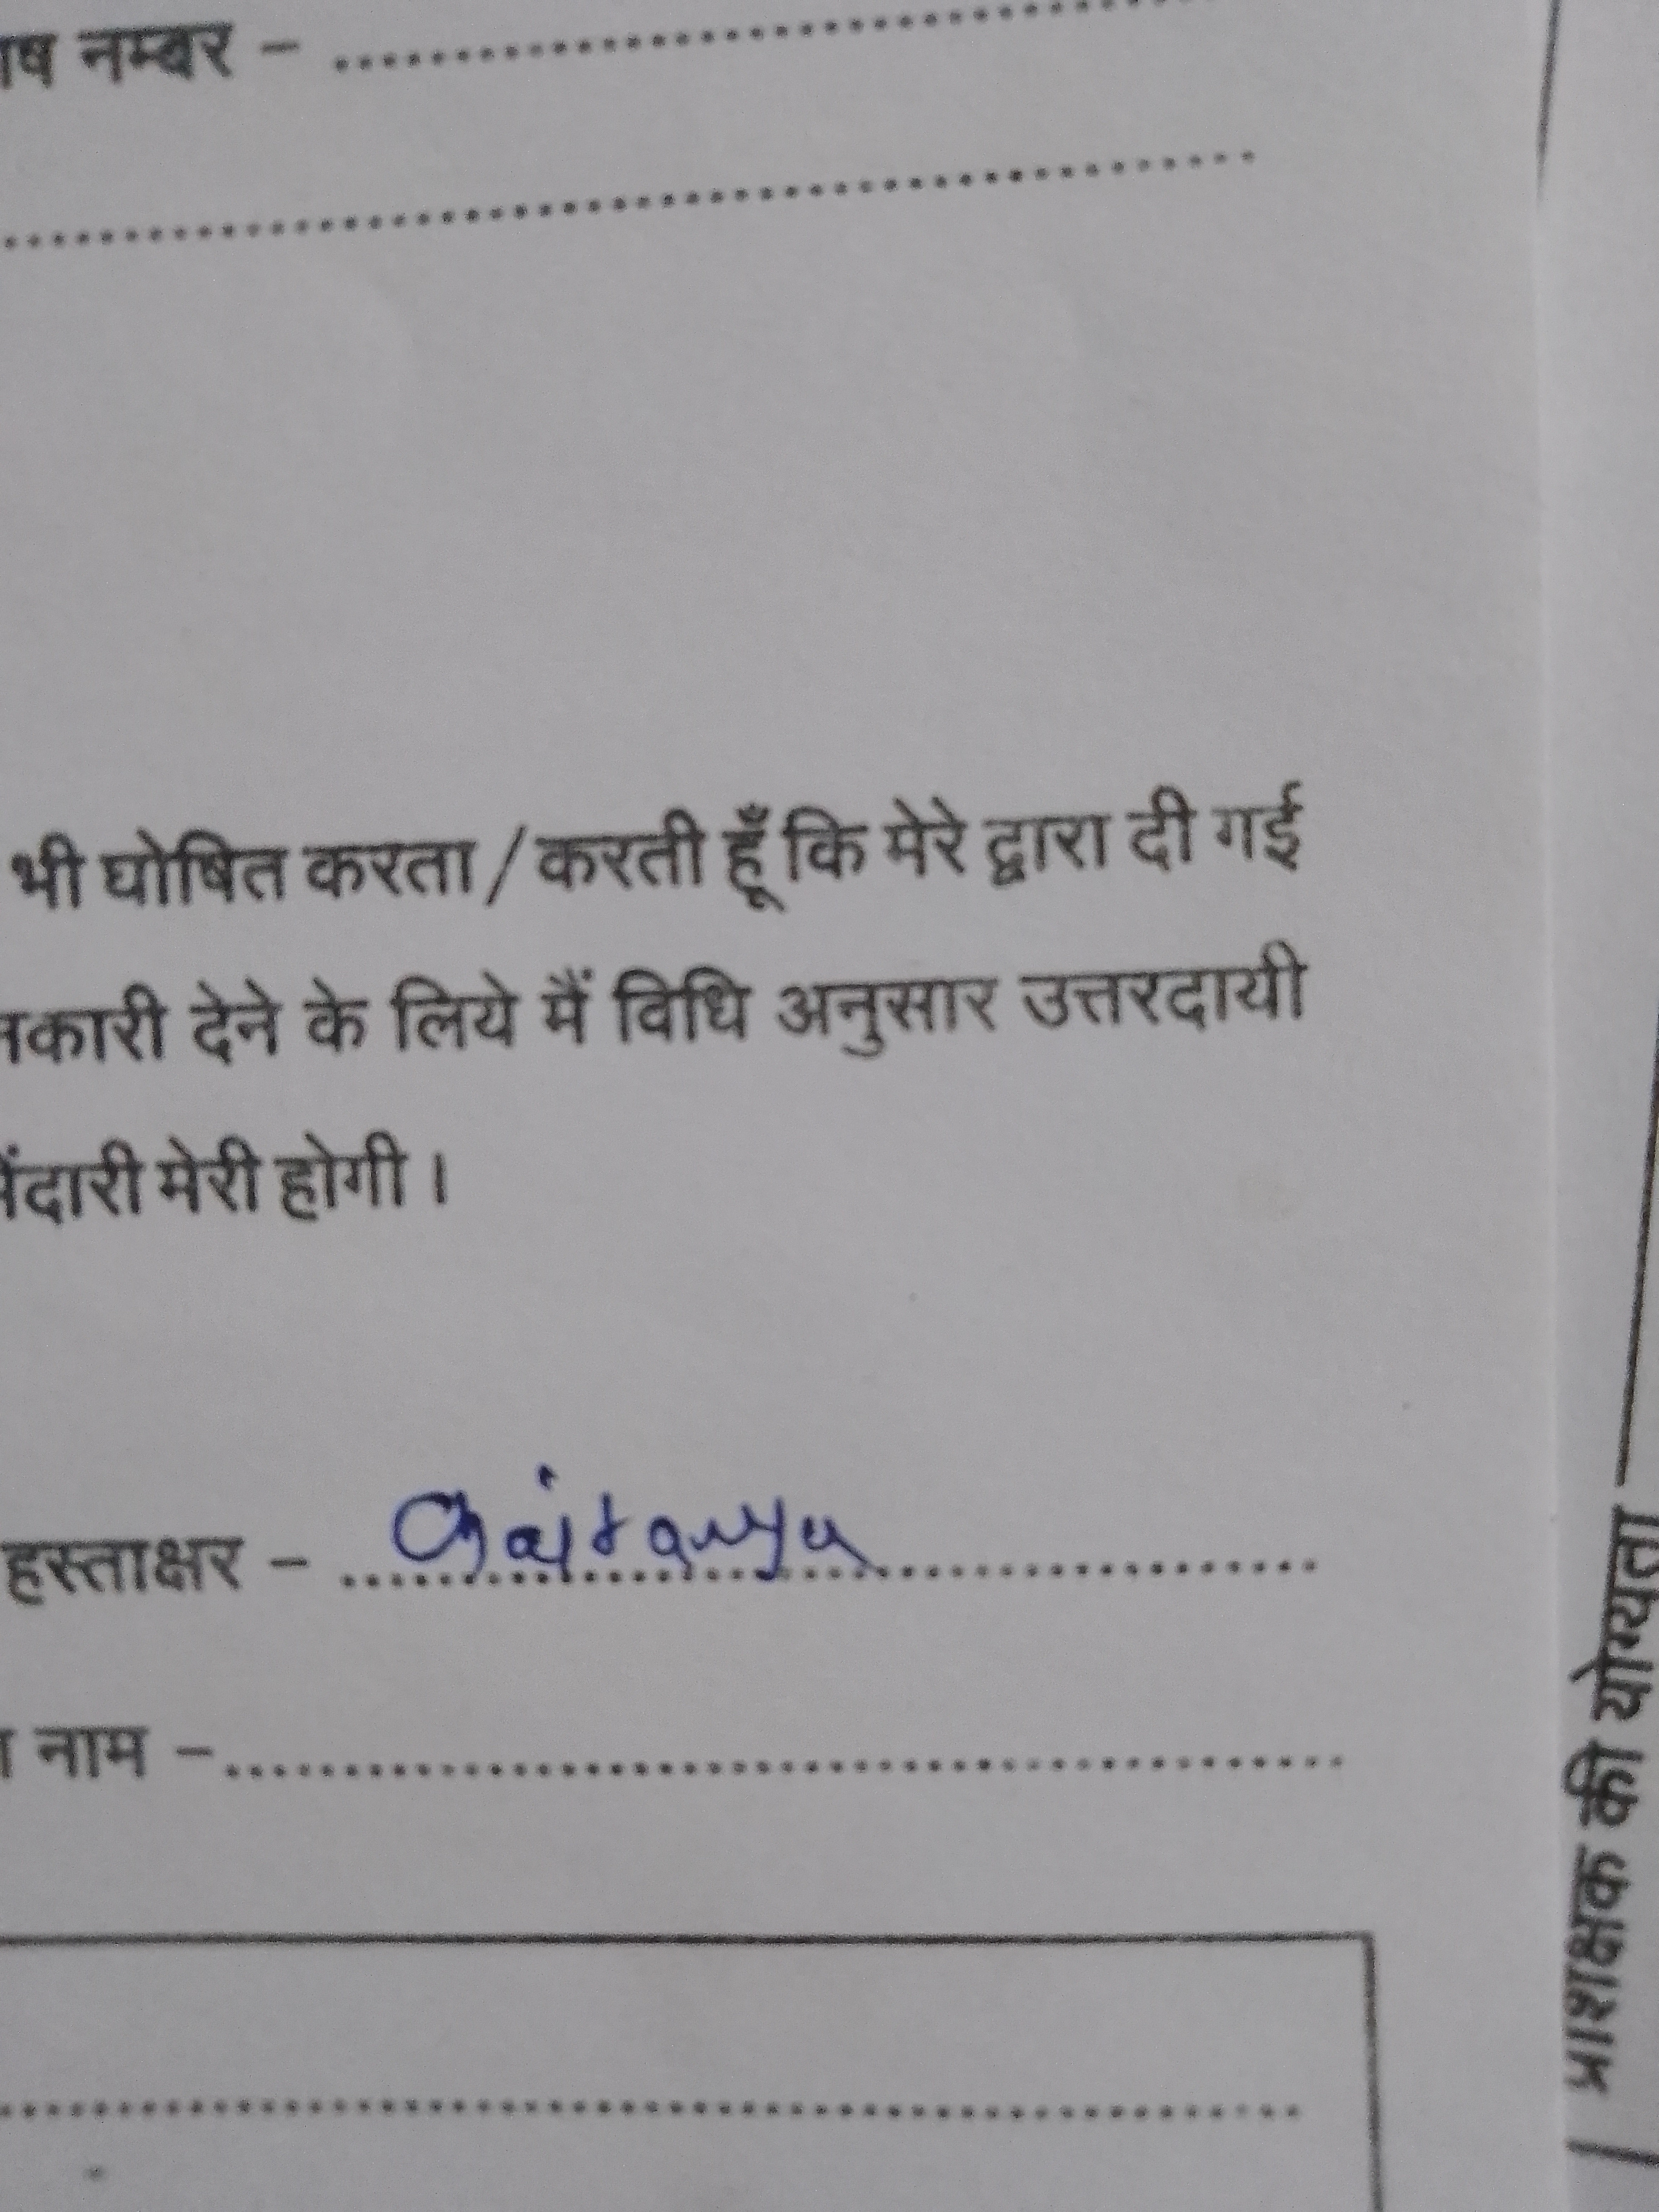 नम्बर – ........................................
..................................................
भी घोषित करता / करती हूँ कि मेरे द्वारा दी गई
देने के लिये मैं विधि अनुसार उत्तरदायी
मेरी होगी ।
हस्ताक्षर – Chaitanya ........................
नाम – ........................................
..................................................
की योग्यता